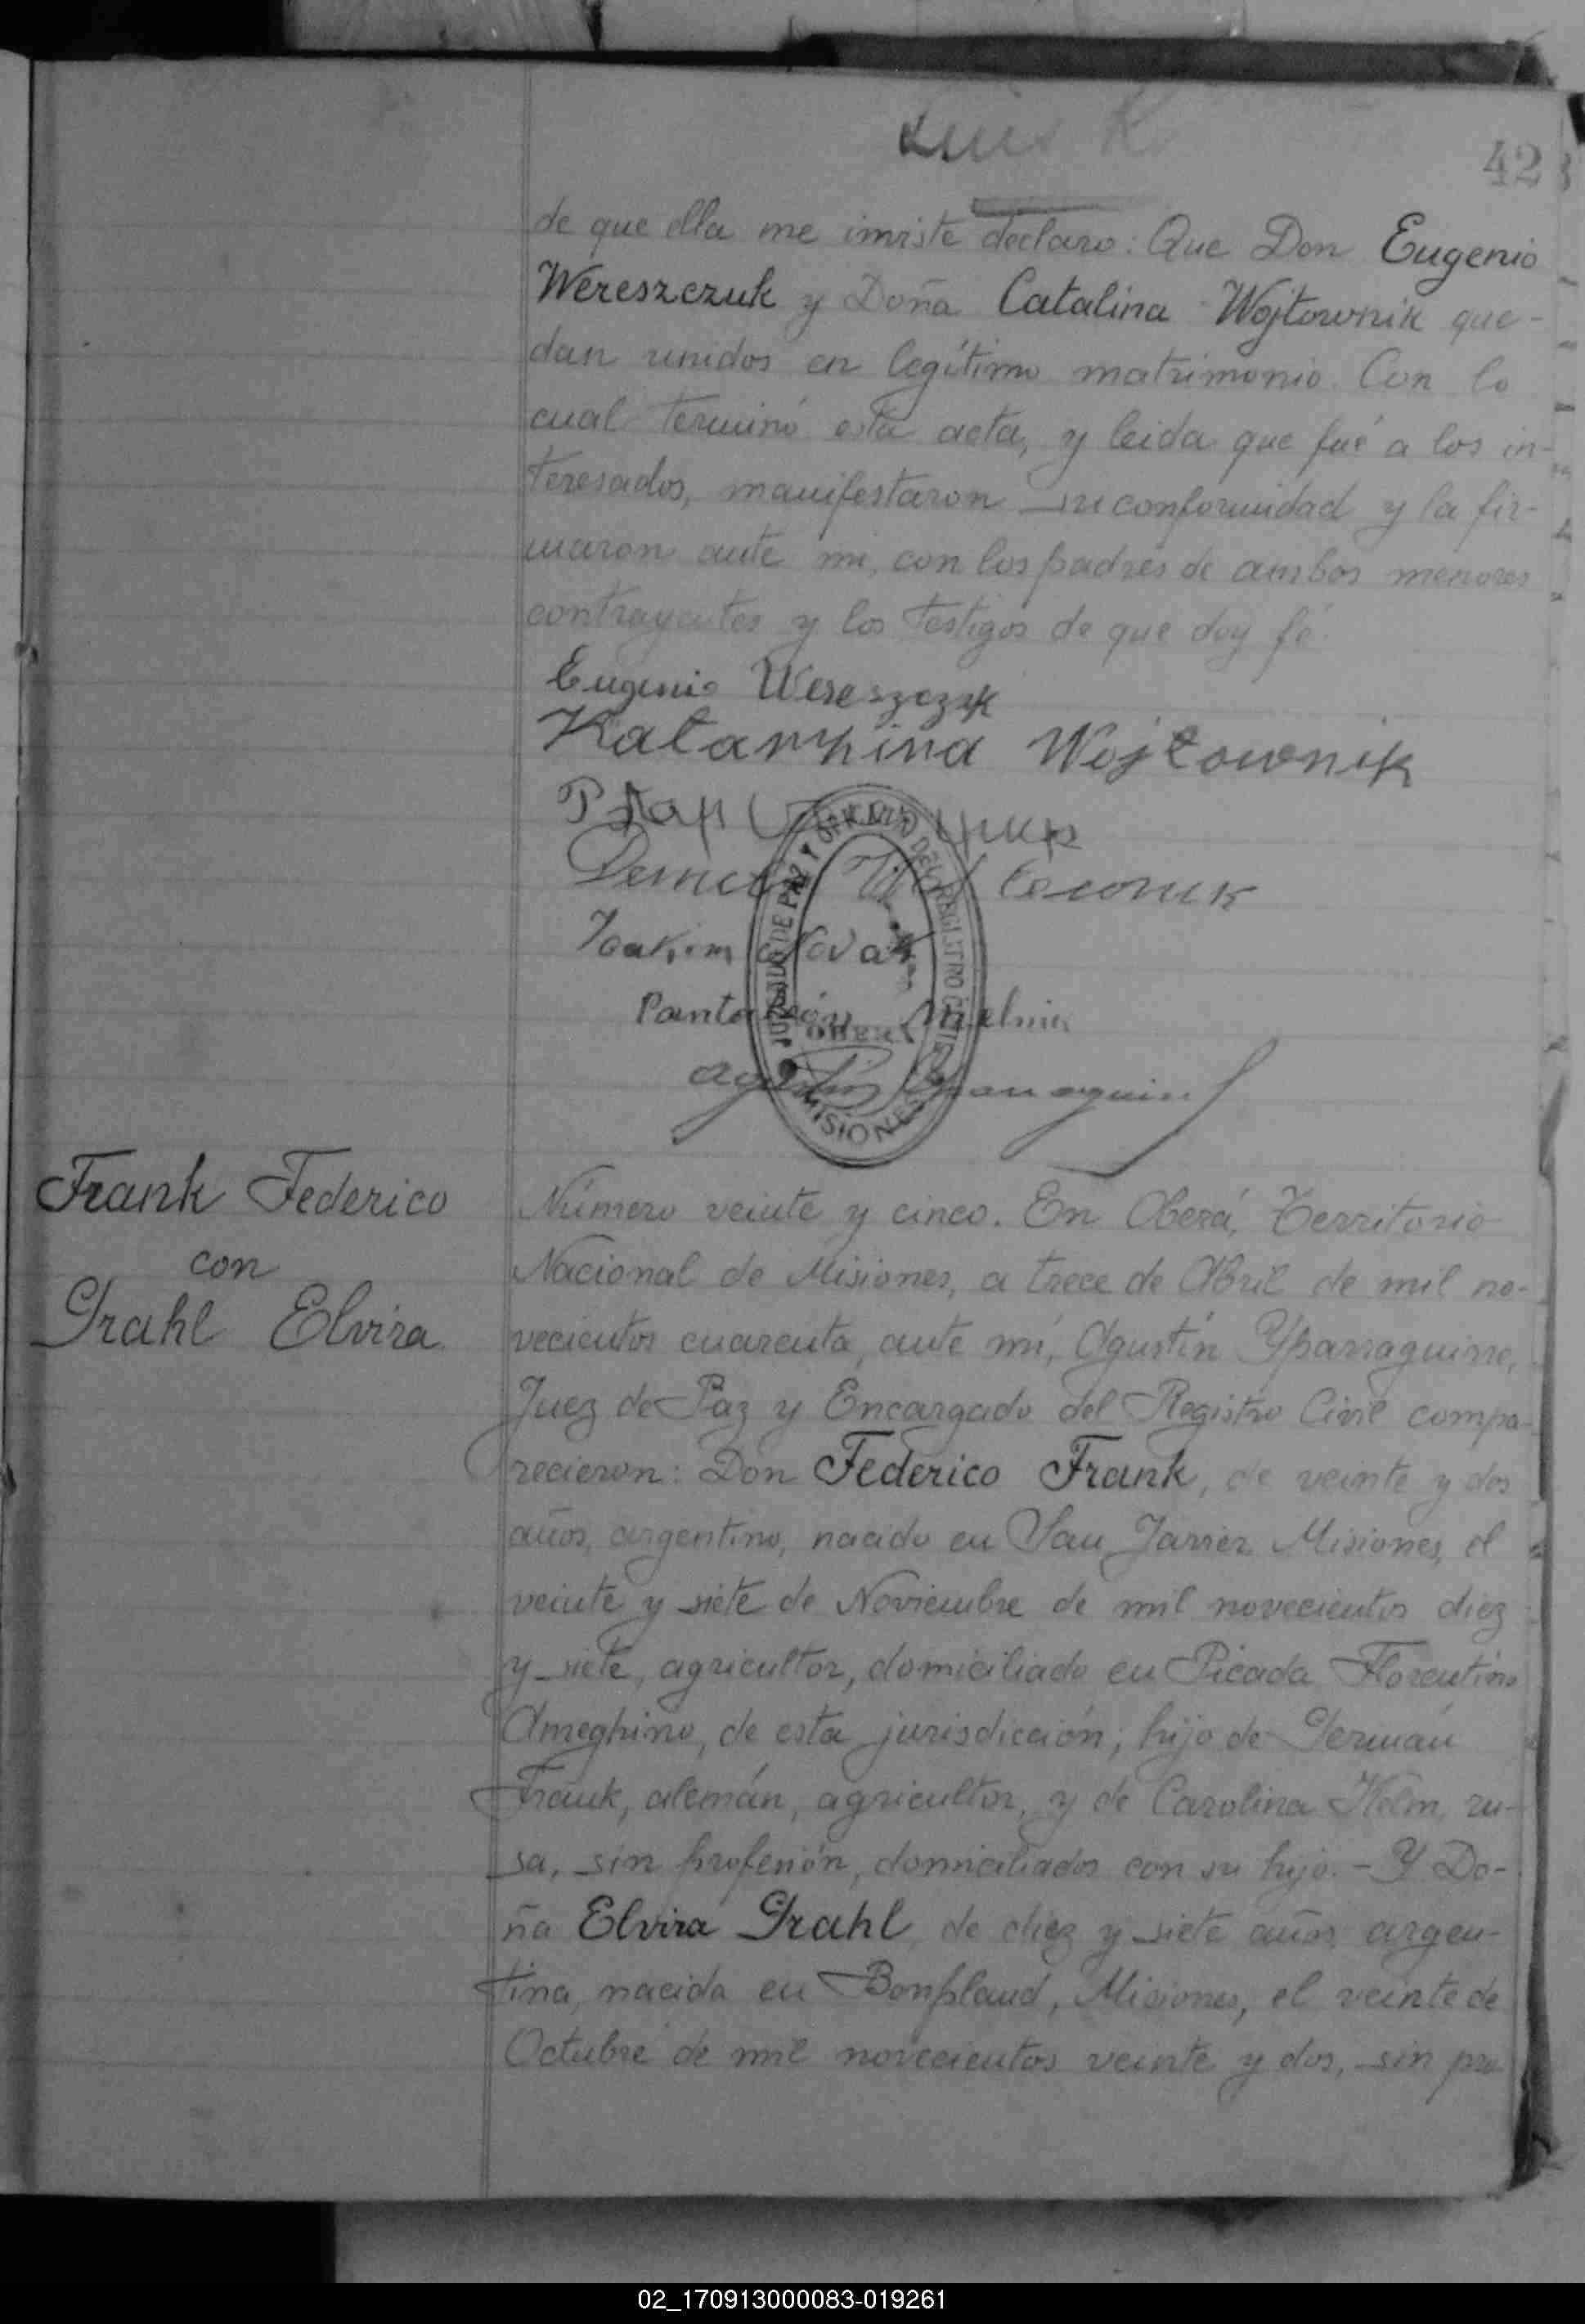 Luis K
42
de que ella me inviste declaro: Que Don Eugenio
Wereszczuk y Doña Catalina Wojtownik que-
dan unidos en legítimo matrimonio. Con lo
cual terminó esta acta, y leida que fué a los in-
teresados, manifestaron su conformidad y la fir-
maron ante mi, con los padres de ambos menores
contrayentes y los testigos de que doy fé.
Eugenio Wereszczuk
Katarzina Wojtownik
Joakim Novak
Pantaleón Melnik
Agustín Yparraguirre
JUZGADO DE PAZ Y OFICINA DEL REGISTRO CIVIL
OBERÁ
MISIONES
Frank Federico
con
Grahl Elvira
Número veinte y cinco. En Oberá, Territorio
Nacional de Misiones, a trece de Abril de mil no-
vecientos cuarenta, ante mí, Agustín Yparraguirre,
Juez de Paz y Encargado del Registro Civil compa-
recieron: Don Federico Frank, de veinte y dos
años, argentino, nacido en San Javier Misiones, el
veinte y siete de Noviembre de mil novecientos diez
y siete, agricultor, domiciliado en Picada Florentino
Ameghino, de esta jurisdicción; hijo de Germán
Frank, alemán, agricultor, y de Carolina Helm, ru-
sa, sin profesión, domiciliados con su hijo. - Y Do-
ña Elvira Grahl, de diez y siete años, argen-
tina, nacida en Bonpland, Misiones, el veinte de
Octubre de mil novecientos veinte y dos, sin pro-
02_170913000083-019261